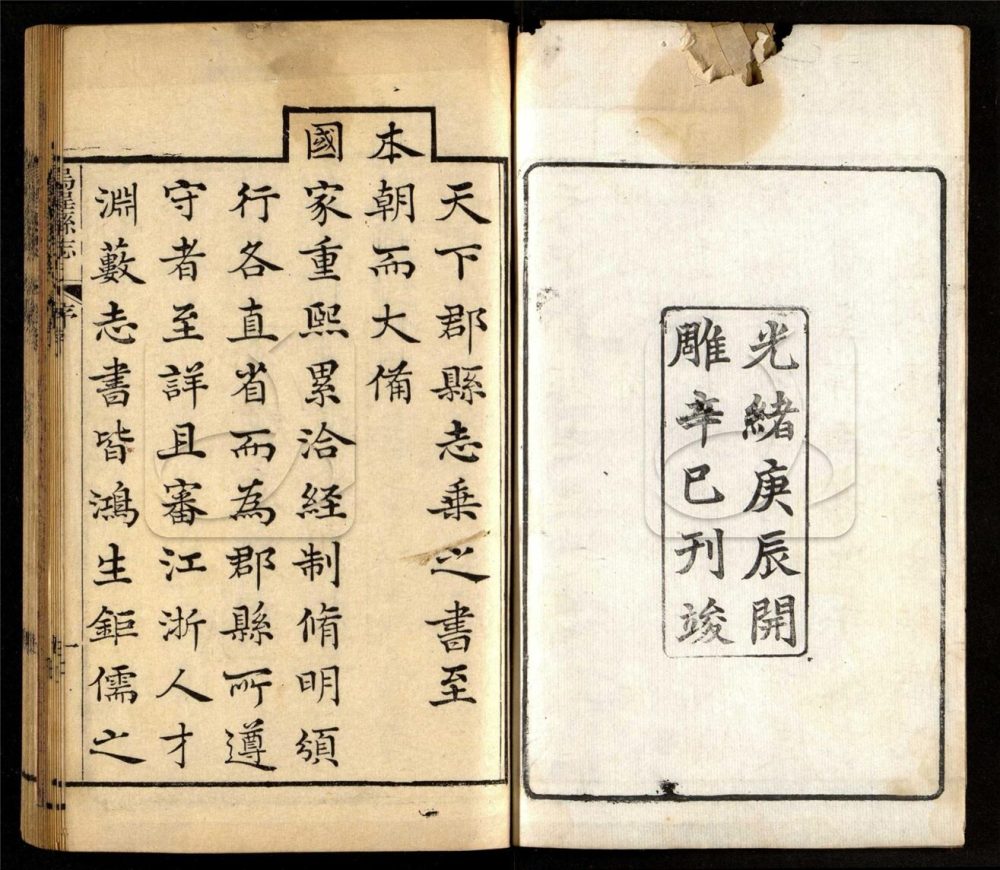 光緒庚辰開
雕辛巳刊竣
天下郡縣志乗之書至
本朝而大備
國家重熙累洽経制脩明頒
行各直省而為郡縣所遵
守者至詳且審江浙人才
淵藪志書皆鴻生鉅儒之
烏程縣志
序
一